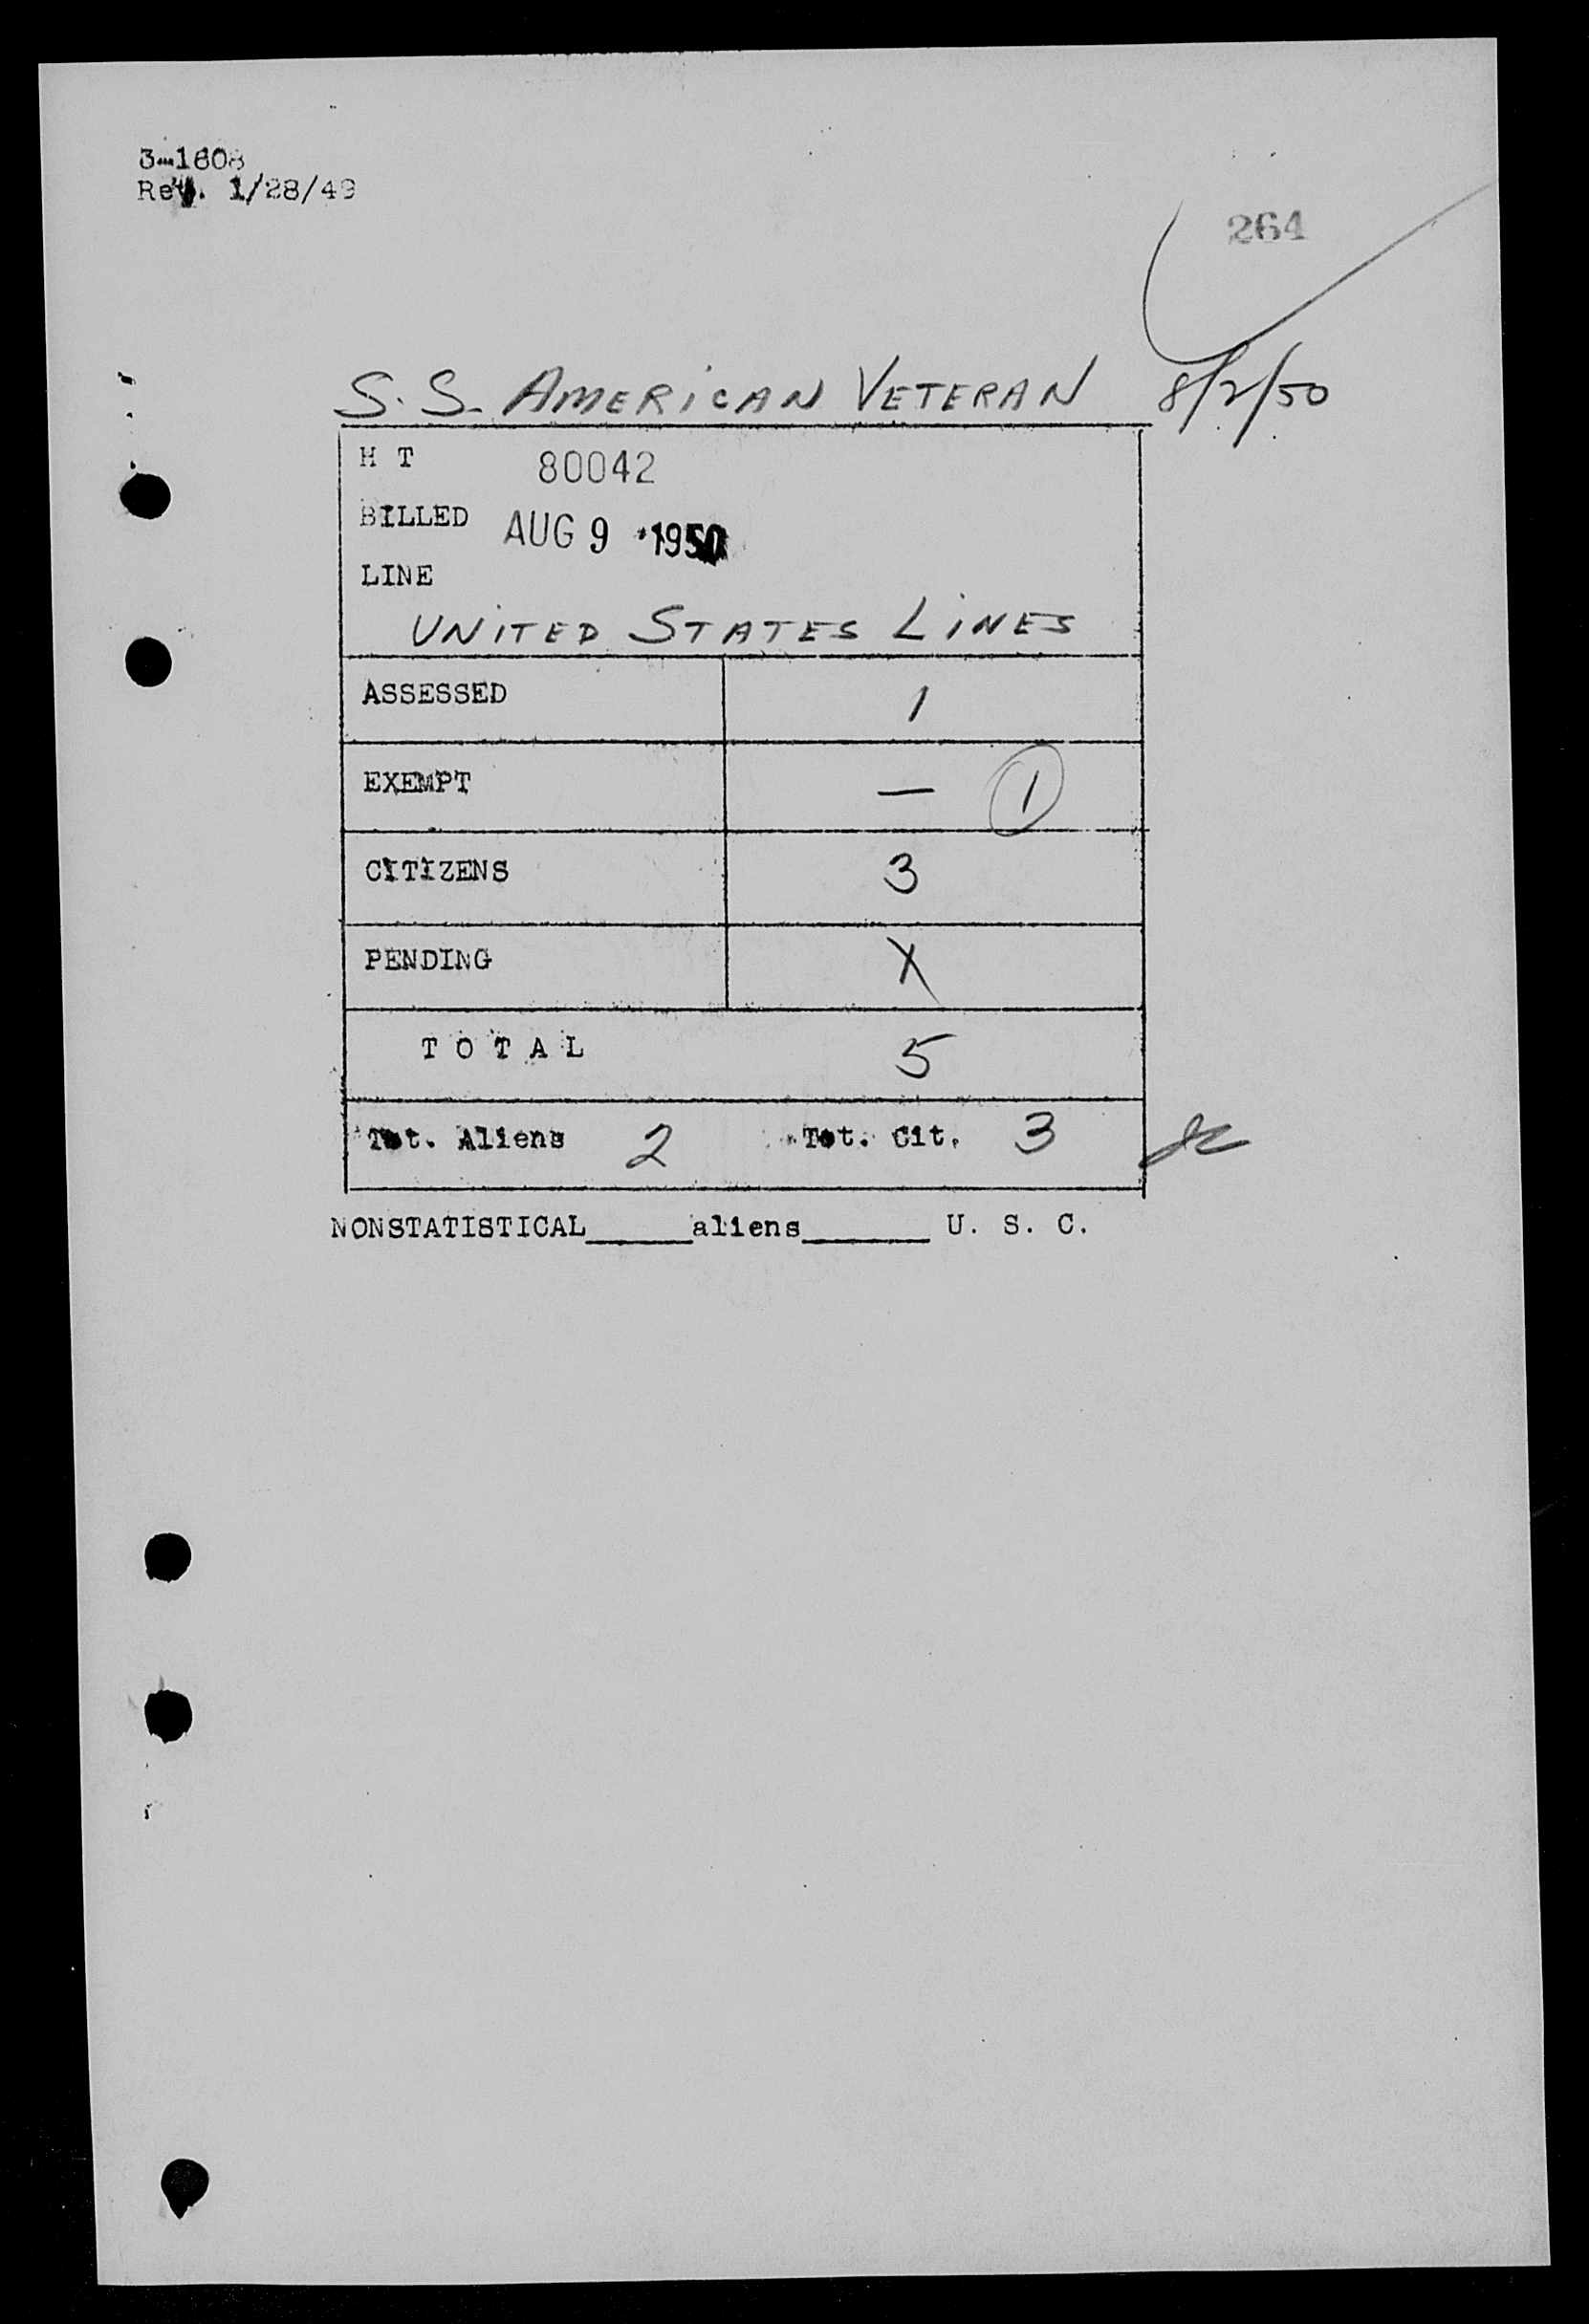 3-1608
Rev. 1/28/49
264
S.S. AMERICAN VETERAN 8/2/50
H T 80042
BILLED AUG 9 1950
LINE
UNITED STATES LINES
ASSESSED 1
EXEMPT — 1
CITIZENS 3
PENDING X
T O T A L 5
Tot. Aliens 2 Tot. Cit. 3
NONSTATISTICAL_____aliens______ U. S. C.